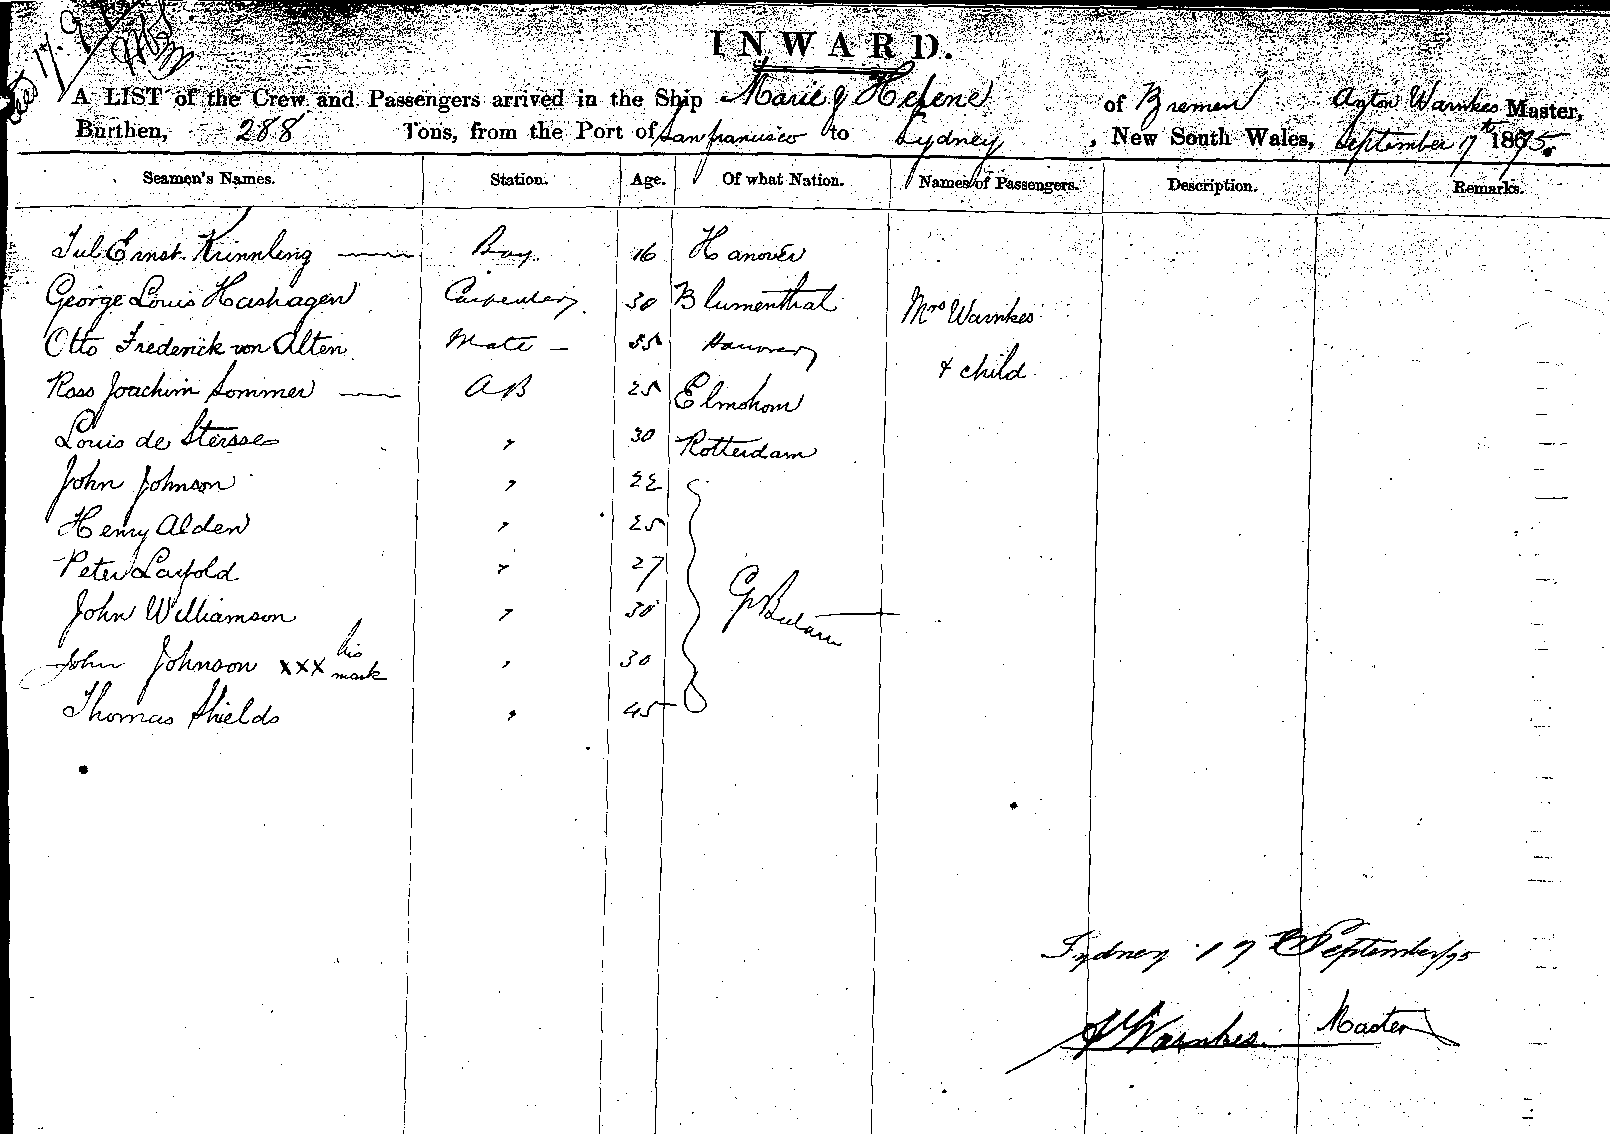 17.9
INWARD.
A LIST of the Crew and Passengers arrived in the Ship Marie & Helene of Bremen Anton Warnkes Master,
Burthen, 288 Tons, from the Port of San Francisco to Sydney, New South Wales, September 17th 1875.
Seamen's Names. Station. Age. Of what Nation. Names of Passengers. Description. Remarks.
Jul Ernst 16 Hanover
George Louis Hashagen Carpenter 30 Blumenthal Mrs Warnkes
Otto Frederick von Alten Mate — 35 Hannover
& child
Ross Joachim Sommer AB 25 Elmshorn
Louis de " 30 Rotterdam
John Johnson " 22
Henry Alden " 25
Peter " 27
John Williamson " 30 Gt Britain
John Johnson XXX his mark " 30
Thomas Shields " 45
Sydney 17th September/75
A Warnkes. Master